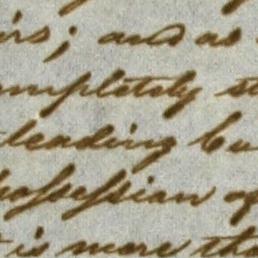 irs; and as
ompletely st
leading bu
possession of
is more tha